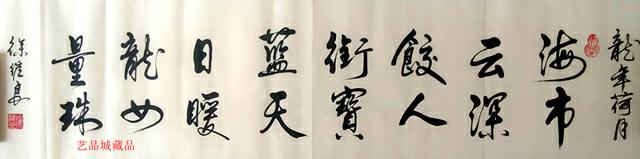 龍年荷月
海市
云深
餃人
銜寶
藍天
日暖
龍女
量珠
徐继
艺品城藏品